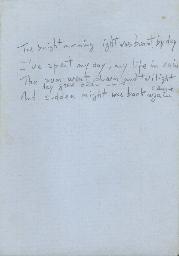 The bright morning light was burnt by day
I've spent my day, my life in vain
The sun went down and twilight
day grew
And sudden night was back again